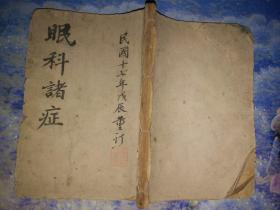 眼科諸症
民國十七年戊辰重订